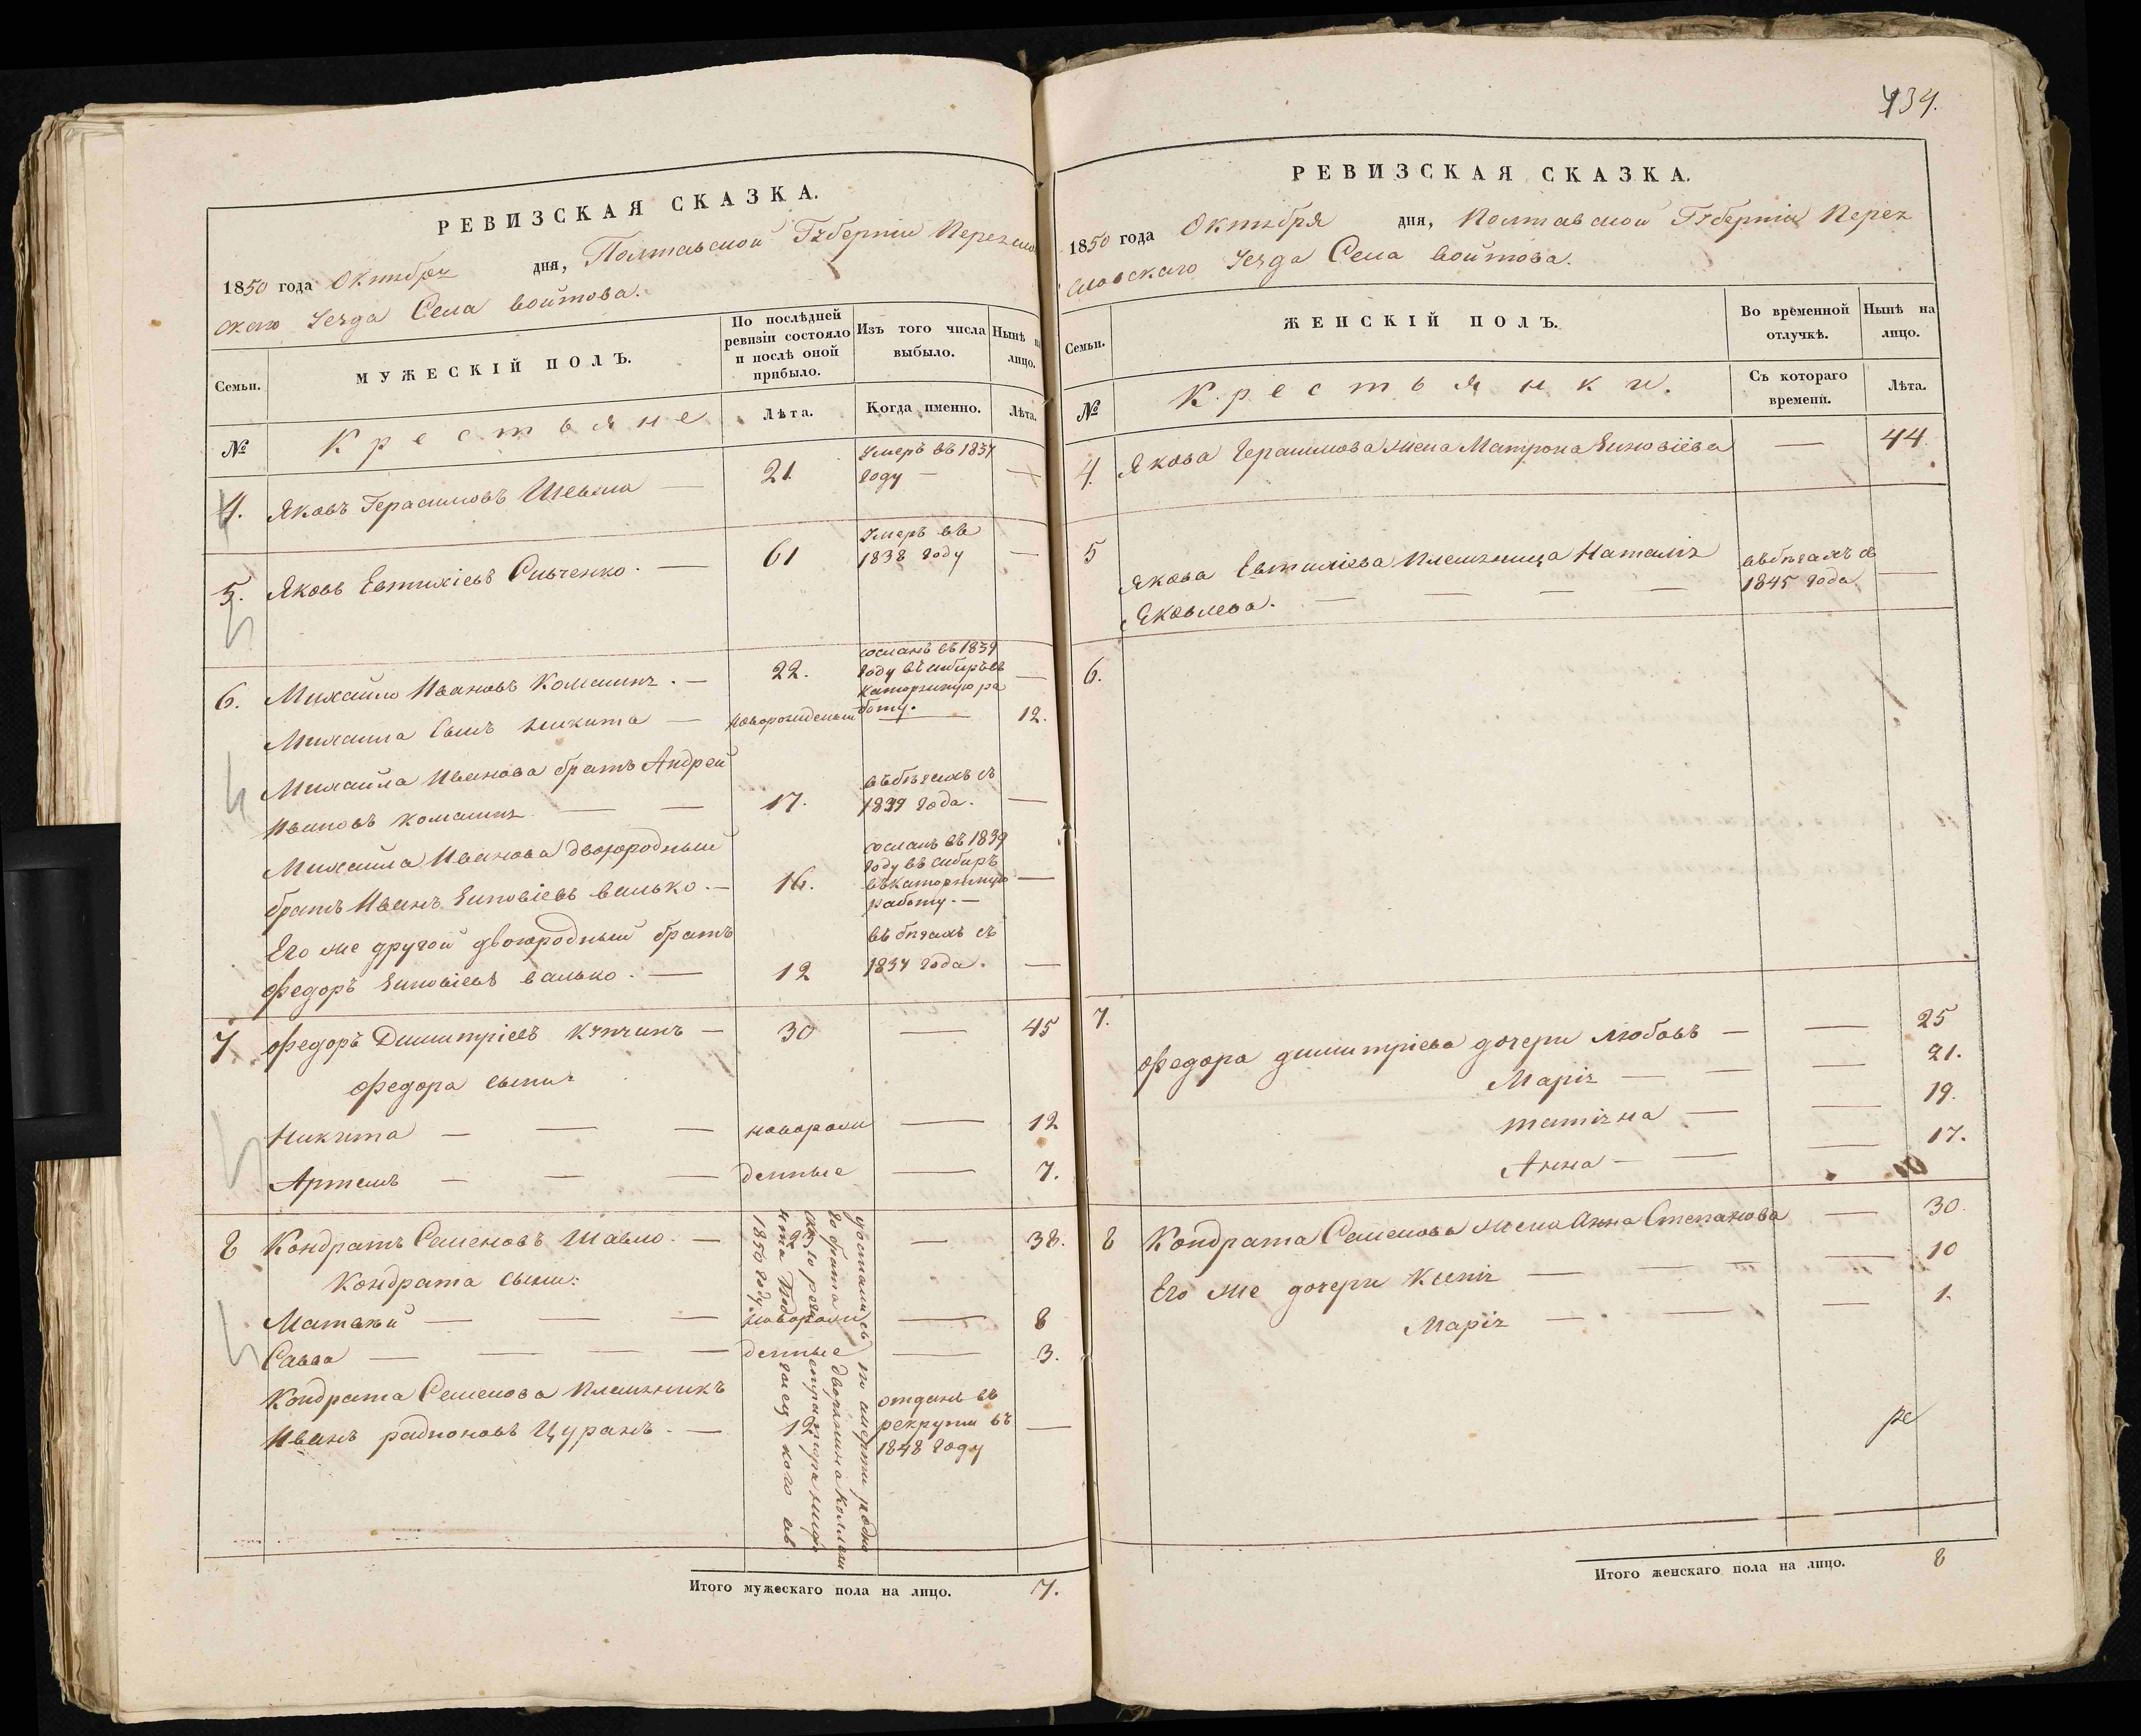 РЕВИЗСКАЯ СКАЗКА.
1850 года Октября дня, Полтавской Губерніи Переясло
скаго Уезда Села Войтова.
Семьи. МУЖЕСКІЙ ПОЛЪ. По послѣдней ревизіи состояло и послѣ оной прибыло. Изъ того числа выбыло. Нынѣ на лицо.
№ Крестьяне Лѣта. Когда именно. Лѣта.
4. Яковъ Герасимовъ 21. Умеръ въ 1837 году —
5. Яковъ Евтихіевъ Сивченко. — 61 Умеръ въ 1838 году —
6. Михайло Ивановъ — 22. сосланъ въ 1839 году въ сибирь въ каторжную работу. —
Михаила Сынъ Никита — новорожденый — 12.
Михайла Иванова братъ Андрей
Ивановъ — — 17. въ бѣгахъ съ 1839 года. —
Михаила Иванова двоюродный
братъ Иванъ Зиновіевъ валько. — 16. сосланъ въ 1839 году въ сибирь въ каторжную работу. — —
Его же другой двоюродный братъ
Федоръ Зиновіевъ валько. — 12 въ бѣгахъ съ 1837 года. —
7. Федоръ Димитріевъ — 30 — 45
Федора сыни
Никита — — — новорож — 12
Артемъ — — — денные — 7.
8 Кондратъ Семеновъ Шавло. — — 38.
Кондрата сыни:
Матвей — — — новорож — 8
Савва — — — — денные — 3.
Кондрата Семенова племянникъ
Иванъ радионовъ Цуранъ. — 12. отданъ въ рекруты въ 1848 году —
достались по смерти родно
го брата дворянина
1850 году
Итого мужескаго пола на лицо. 7.
434.
РЕВИЗСКАЯ СКАЗКА.
1850 года Октября дня, Полтавской Губерніи Перея
словскаго Уезда Села Войтова.
Семьи. ЖЕНСКІЙ ПОЛЪ. Во временной отлучкѣ. Нынѣ на лицо.
№ Крестьянки. Съ котораго времени. Лѣта.
4. Якова Герасимова жена Матрона Зиновіева — 44.
5 Якова Евтихіева племяница Наталія
Яковлева. — — — — въ бѣгахъ съ 1845 года. —
6.
7. Федора димитріева дочери Любовь — — 25
Марія — — — 21.
татіяна — — 19.
Анна — — — 17.
8 Кондрата Семенова жена Анна Степанова — 30.
Его же дочери Ксенія — — — — 10
Марія — — — 1.
Итого женскаго пола на лицо. 8